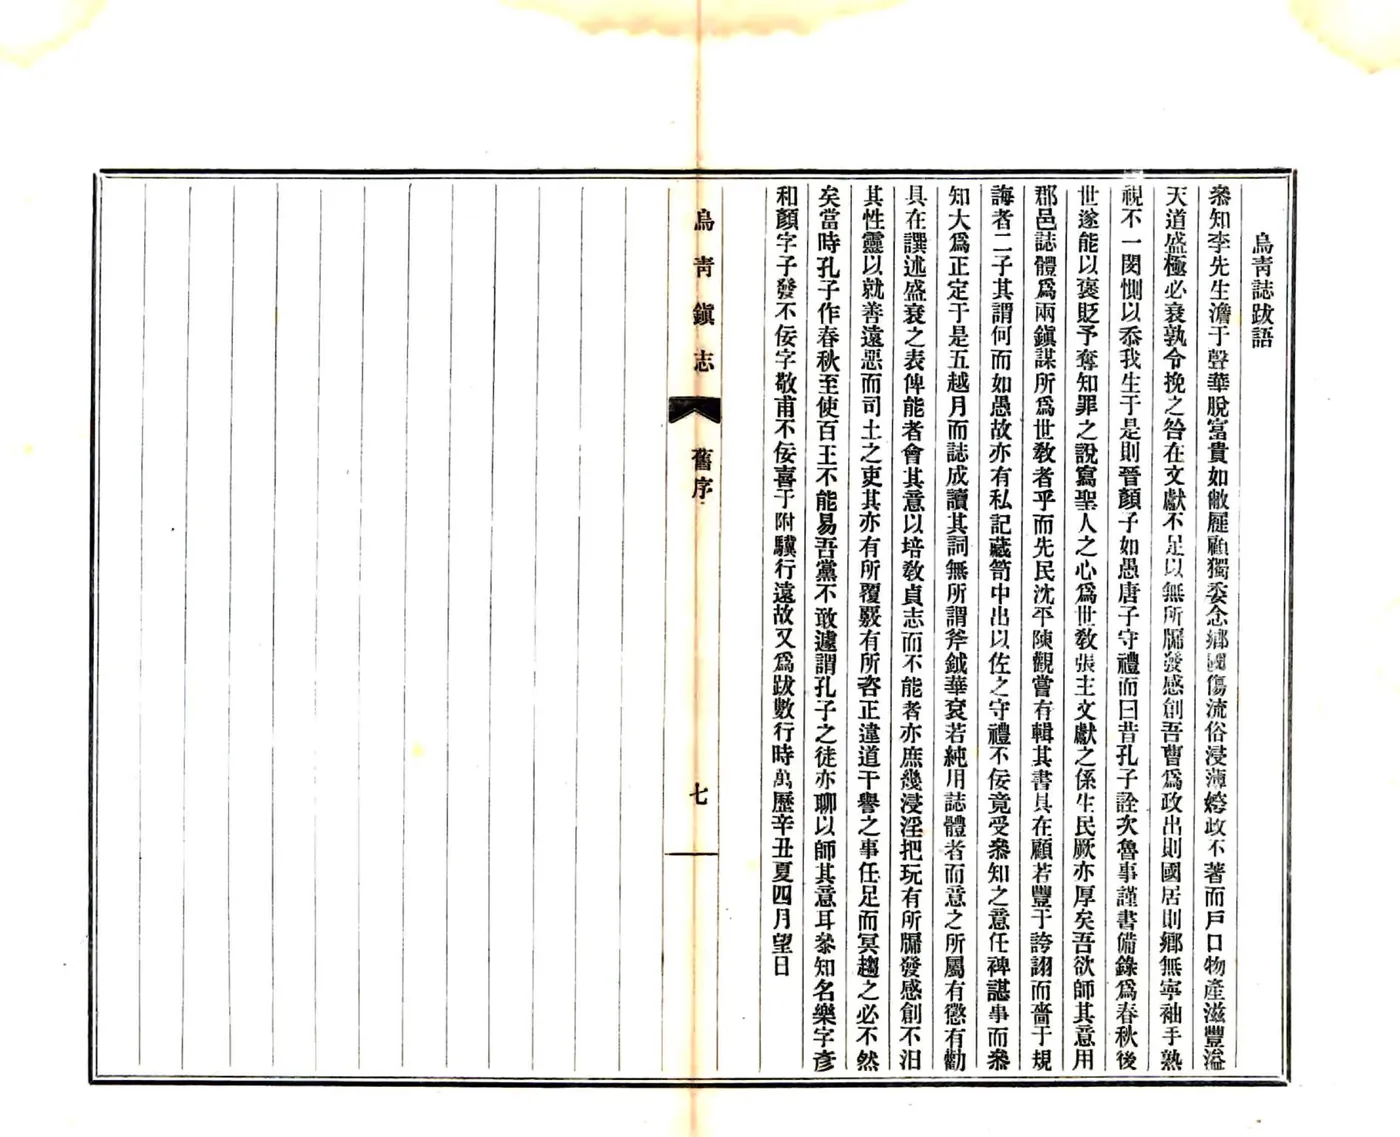 烏青誌跋語
叅知李先生澹于聲華脫富貴如敝屣顧獨委念鄉國傷流俗浸薄婞政不著而戶口物產滋豐溢
天道盛極必衰孰令挽之咎在文獻不足以無所牖發感創吾曹爲政出則國居則鄉無寧袖手熟
視不一閔惻以忝我生于是則晉顏子如愚唐子守禮而曰昔孔子詮次魯事謹書備錄爲春秋後
世遂能以褒貶予奪知罪之說窩聖人之心爲世敎張主文獻之係生民厥亦厚矣吾欲師其意用
郡邑誌體爲兩鎭謀所爲世敎者乎而先民沈平陳觀嘗有輯其書具在顧若豐于誇詡而嗇于規
誨者二子其謂何而如愚故亦有私記藏笥中出以佐之守禮不佞竟受叅知之意任裨諶事而叅
知大爲正定于是五越月而誌成讀其詞無所謂斧鉞華袞若純用誌體者而意之所屬有懲有勸
具在譔述盛衰之表俾能者會其意以培敎貞志而不能者亦庶幾浸淫把玩有所牖發感創不汨
其性靈以就善遠惡而司土之吏其亦有所覆覈有所咨正違道干譽之事任足而冥趨之必不然
矣當時孔子作春秋至使百王不能易吾黨不敢遽謂孔子之徒亦聊以師其意耳叅知名樂字彥
和顏字子發不佞字敬甫不佞喜于附驥行遠故又爲跋數行時萬歷辛丑夏四月望日
烏青鎭志
舊序
七